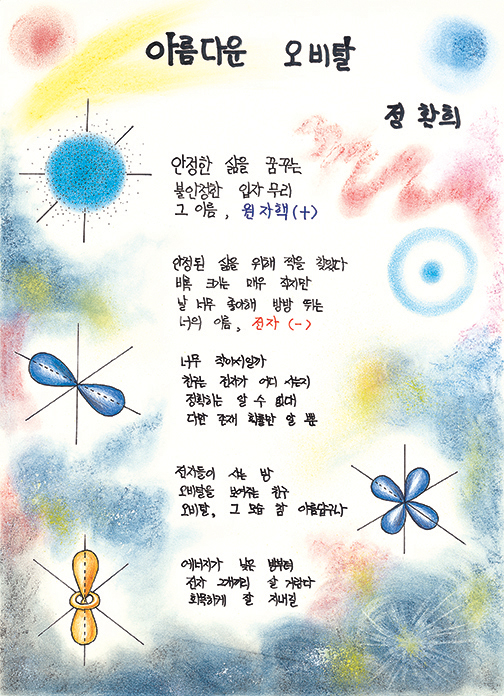 아름다운 오비탈
정환희
안정한 삶을 꿈꾸는
불안정한 입자 무리
그 이름, 원자핵(+)
안정된 삶을 위해 짝을 찾았다
비록 크기는 매우 작지만
날 너무 좋아해 방방 뛰는
너의 이름, 전자 (-)
너무 작아서일까
친구는 전자가 어디 사는지
정확히는 알 수 없대
다만 존재 확률만 알 뿐
전자들이 사는 방
오비탈을 보여주는 친구
오비탈, 그 모습 참 아름답구나
에너지가 낮은 방부터
전자 2개까지 살 거란다
화목하게 잘 지내길